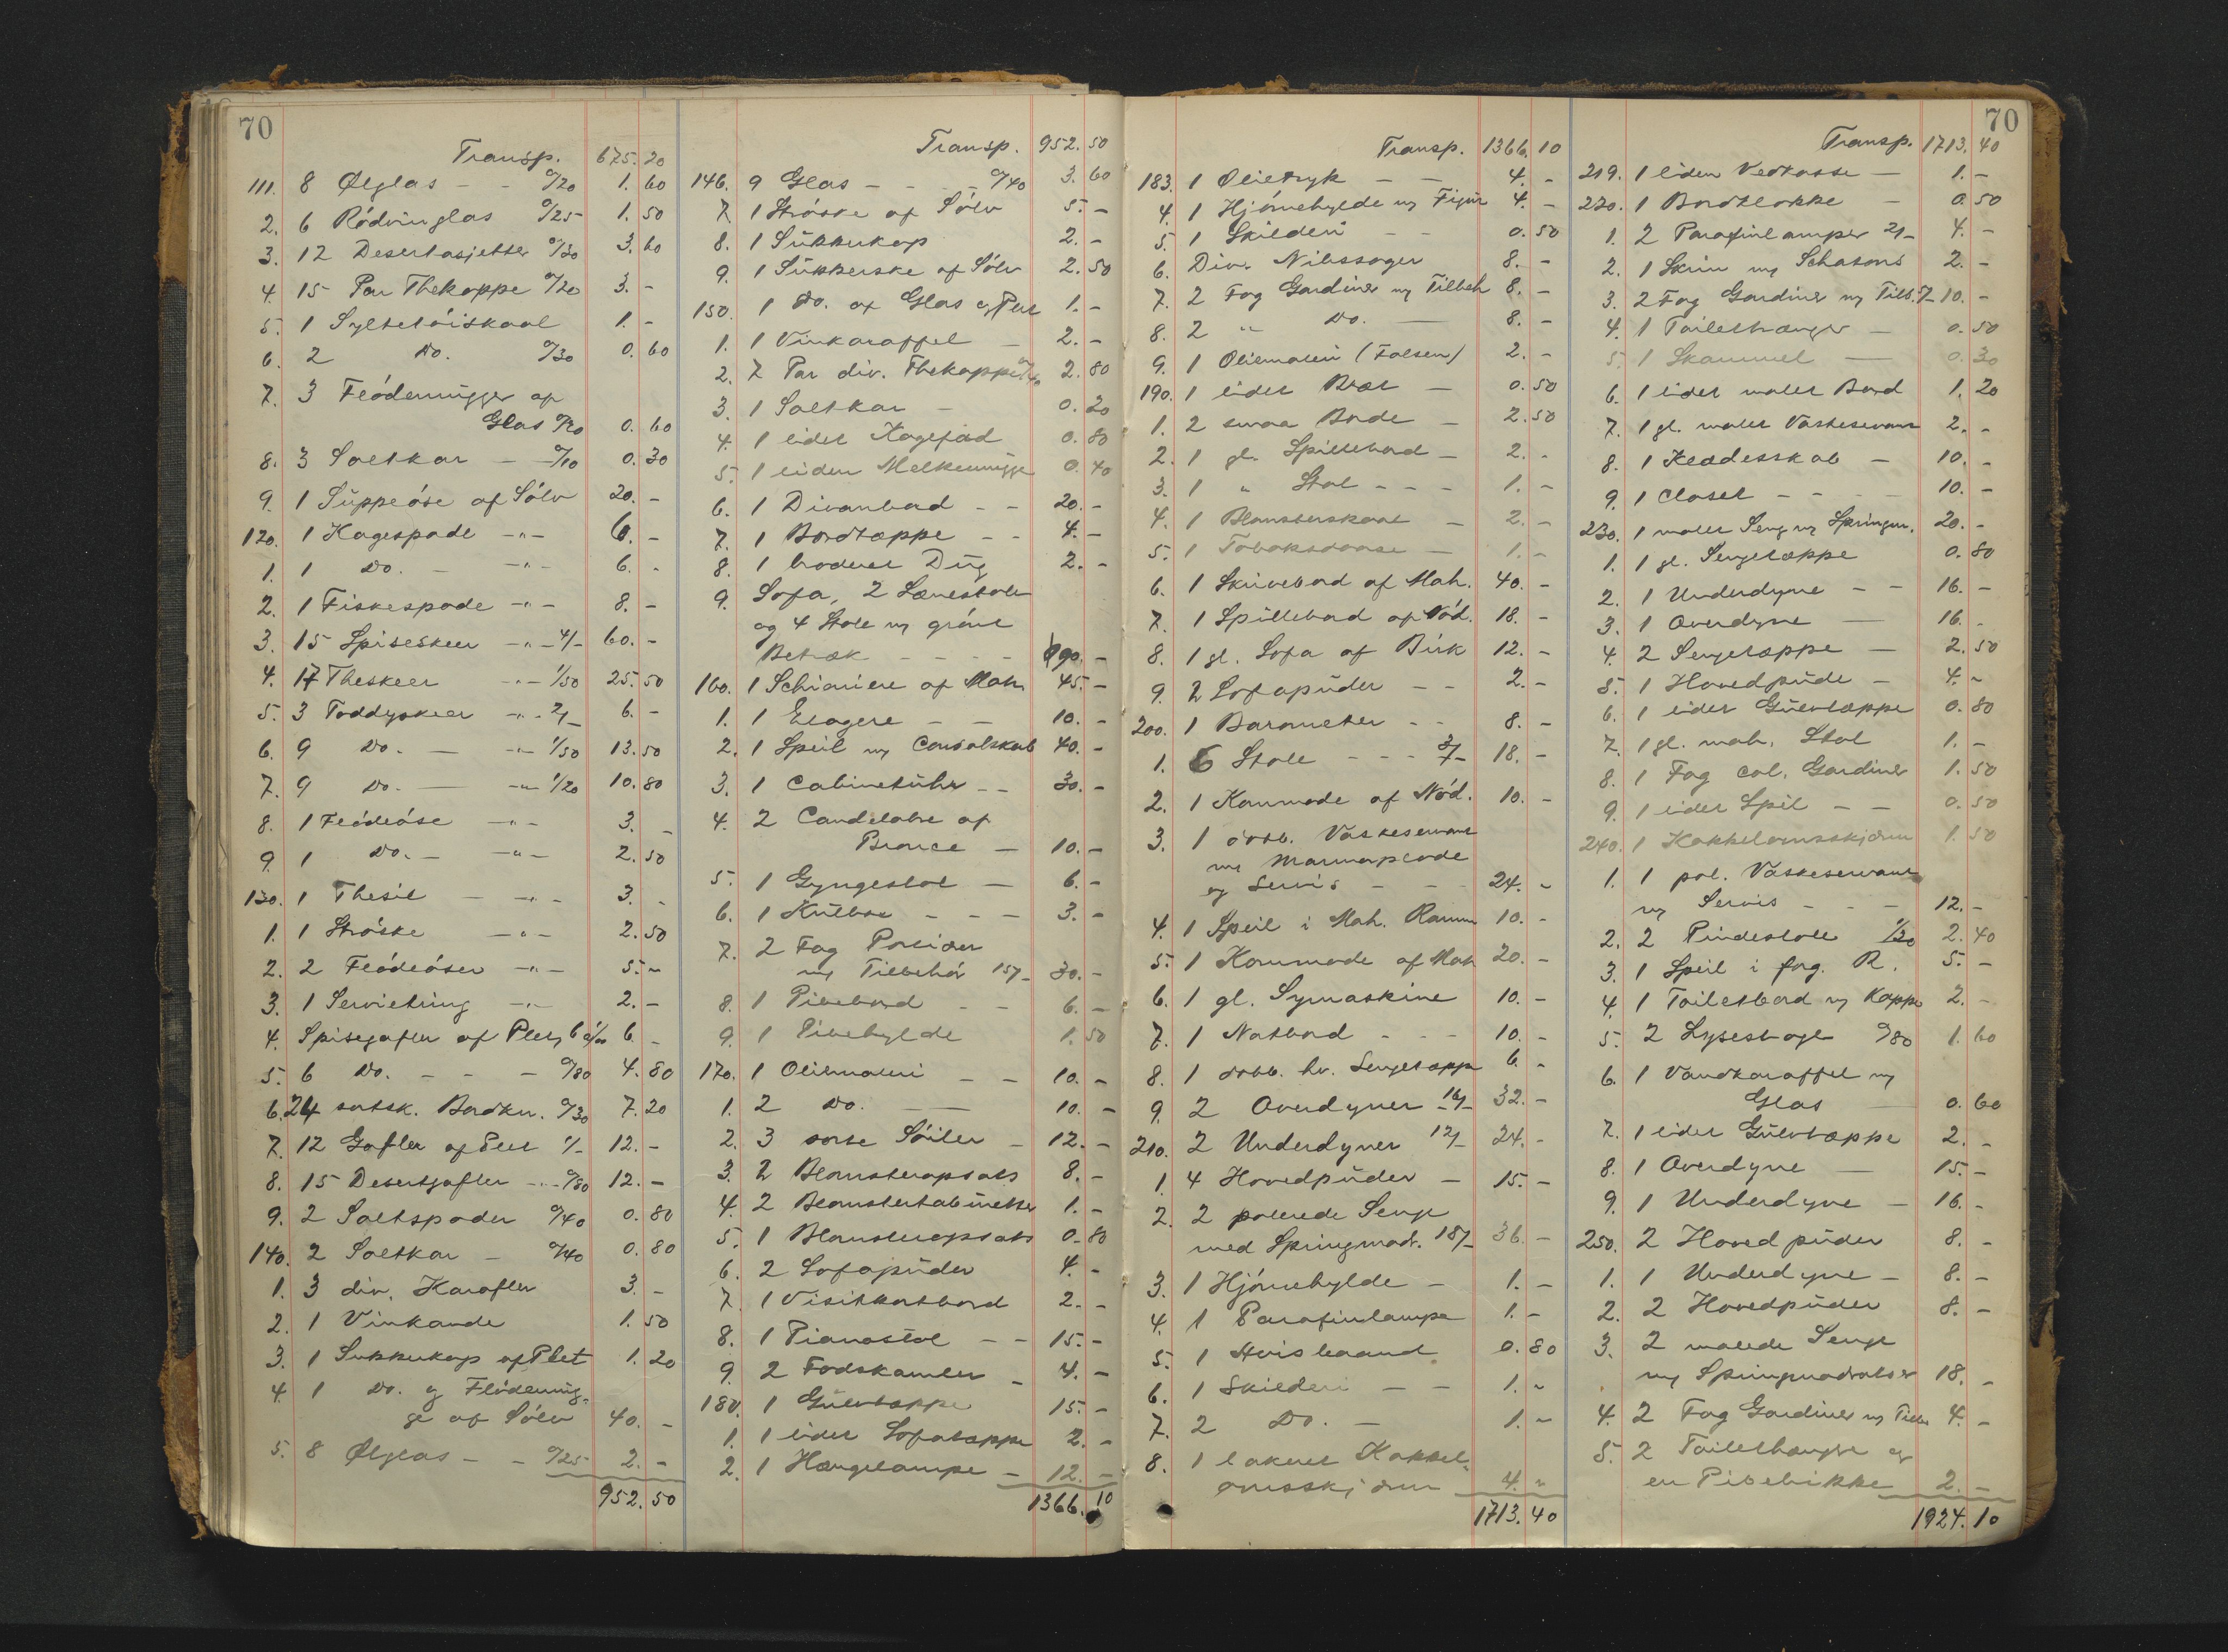 70
Transp. 675.20
111. 8 Ølglas - - 0/20 1.60
2. 6 Rödvinglas 0/25 1.50
3. 12 Desertasjetter 0/30 3.60
4. 15 Par Thekoppe 0/20 3.-
5. 1 Syltetöiskaal 1.-
6. 2 Do. 0/30 0.60
7. 3 Flödemugger af
Glas 0/20 0.60
8. 3 Saltkar - 0/10 0.30
9. 1 Suppeöse af Sölv 20.-
120. 1 Kagespade -"- 6.-
1. 1 Do. - -"- 6.-
2. 1 Fiskespade -"- 8.-
3. 15 Spiseskeer -"- 4/- 60.-
4. 17 Theskeer -"- 1/50 25.50
5. 3 Toddyskeer -"- 2/- 6.-
6. 9 Do. - -"- 1/50 13.50
7. 9 Do. - -"- 1/20 10.80
8. 1 Flödeöse -"- 3.-
9. 1 Do. - -"- 2.50
130. 1 Thesil - -"- 3.-
1. 1 Ströske -"- 2.50
2. 2 Flödeöser -"- 5.-
3. 1 Servietring -"- 2.-
4. Spisegafler af Plet, 6 1/00 6.-
5. 6 Do. - - - 0/80 4.80
6. 24 sortsk. Bordkn. 0/30 7.20
7. 12 Gafler af Plet 1/- 12.-
8. 15 Desertgafler -"- 0/80 12.-
9. 2 Saltspader 0/40 0.80
140. 2 Saltkar - 0/40 0.80
1. 3 div. Karafler 3.-
2. 1 Vinkande 1.50
3. 1 Sukkerkop af Plet 1.20
4. 1 Do. og Flödemug-
ge af Sölv 40.-
5. 8 Ølglas - - 0/25 2.-
952.50
Transp. 952.50
146. 9 Glas - - - 0/40 3.60
7. 1 Ströske af Sölv 5.-
8. 1 Sukkerkop 2.-
9. 1 Sukkerske af Sölv 2.50
150. 1 Do. af Glas og Plet 1.-
1. 1 Vinkaraffel - 2.-
2. 7 Par div. Thekopper 0/40 2.80
3. 1 Saltkar - 0.20
4. 1 lidet Kagefad 0.80
5. 1 liden Melkemugge 0.40
6. 1 Divanbord - - 20.-
7. 1 Bordtæppe - - 4.-
8. 1 broderet Dug 2.-
9. Sofa, 2 Lænestole
og 4 Stole m/ grönt
Betræk - - - - 90.-
160. 1 Schioniere af Mah. 45.-
1. 1 Etagere - - 10.-
2. 1 Speil m/ Consolskab 40.-
3. 1 Cabinetuhr - - 30.-
4. 2 Candelabre af
Bronce - 10.-
5. 1 Gyngestol - 6.-
6. 1 Kulbox - - - 3.-
7. 2 Fag Portierer
m/ Tilbehör 15/- 30.-
8. 1 Pibebord - - 6.-
9. 1 Pibehylde 1.50
170. 1 Oliemaleri - - 10.-
1. 2 Do. - 10.-
2. 3 sorte Söiler - 12.-
3. 2 Blomsteropsats 8.-
4. 2 Blomstertabouretter 1.-
5. 1 Blomsteropsats 0.80
6. 2 Sofapuder 4.-
7. 1 Visitkortbord 2.-
8. 1 Pianostol - - 15.-
9. 2 Fodskamler - 4.-
180. 1 Gulvtæppe 15.-
1. 1 lidet Sofatæppe 2.-
2. 1 Hængelampe - 12.-
1366.10
Transp. 1366.10
183. 1 Olietryk - - 4.-
4. 1 Hjörnehylde m/ Figur 4.-
5. 1 Skilderi - - 0.50
6. Div. Nibssager 8.-
7. 2 Fag Gardiner m/ Tilbeh 8.-
8. 2 " Do. - 8.-
9. 1 Oliemaleri (Falsen) 2.-
190. 1 lidet Bræt - 0.50
1. 2 smaa Borde - 2.50
2. 1 gl. Spillebord - 2.-
3. 1 " Stol - - - 1.-
4. 1 Blomsterskaal - 2.-
5. 1 Tobaksdaase - 1.-
6. 1 Skrivebord af Mah. 40.-
7. 1 Spillebord af Nöd. 18.-
8. 1 gl. Sofa af Birk 12.-
9. 2 Sofapuder - - 2.-
200. 1 Barometer - - 8.-
1. 6 Stole - - - 3/- 18.-
2. 1 Kommode af Nöd. 10.-
3. 1 dobb. Vaskeservant
m/ Marmorplade
og Servis - - - 24.-
4. 1 Speil i Mah. Ramme 10.-
5. 1 Kommode af Mah 20.-
6. 1 gl. Symaskine 10.-
7. 1 Natbord - - - 10.-
8. 1 dobb. hv. Sengetæppe 6.-
9. 2 Overdyner 16/- 32.-
210. 2 Underdyner 12/- 24.-
1. 4 Hovedpuder - 15.-
2. 2 polerede Senge
med Springmadr. 18/- 36.-
3. 1 Hjörnehylde - 1.-
4. 1 Parafinlampe 1.-
5. 1 Avisbaand 0.80
6. 1 Skilderi - - 1.-
7. 2 Do. - 1.-
8. 1 lakeret Kakkel-
ovnsskjærm 4.-
1713.40
70
Transp. 1713.40
219. 1 liden Vedkasse - 1.-
220. 1 Bordklokke - 0.50
1. 2 Parafinlamper 2/- 4.-
2. 1 Skrin m/ Schatons 2.-
3. 2 Fag Gardiner m/ Tilb. 5/- 10.-
4. 1 Toilethænger - 0.50
5. 1 Skammel - 0.30
6. 1 lidet malet Bord 1.20
7. 1 gl. malet Vaskeservant 2.-
8. 1 Klædesskab - 10.-
9. 1 Closet - - - - 10.-
230. 1 malet Seng m/ Springm. 20.-
1. 1 gl. Sengetæppe 0.80
2. 1 Underdyne - - 16.-
3. 1 Overdyne - 16.-
4. 2 Sengetæppe - 2.50
5. 1 Hovedpude - 4.-
6. 1 lidet Gulvtæppe 0.80
7. 1 gl. mah. Stol 1.-
8. 1 Fag col. Gardiner 1.50
9. 1 lidet Speil - - 0.50
240. 1 Kakkelovnsskjærm 1.50
1. 1 pol. Vaskeservant
m/ Servis - - - 12.-
2. 2 Pindestole 1/20 2.40
3. 1 Speil i forg. R. 5.-
4. 1 Toiletbord m/ Kappe 2.-
5. 2 Lysestager 0/80 1.60
6. 1 Vandkaraffel m/
Glas - 0.60
7. 1 lidet Gulvtæppe 2.-
8. 1 Overdyne - 15.-
9. 1 Underdyne - 16.-
250. 2 Hovedpuder 8.-
1. 1 Underdyne - 8.-
2. 2 Hovedpuder 8.-
3. 2 malede Senge
m/ Springmadratser 18.-
4. 2 Fag Gardiner m/ Tilb. 4.-
5. 2 Toilethængere og
en Pibebrikke 2.-
1924.10